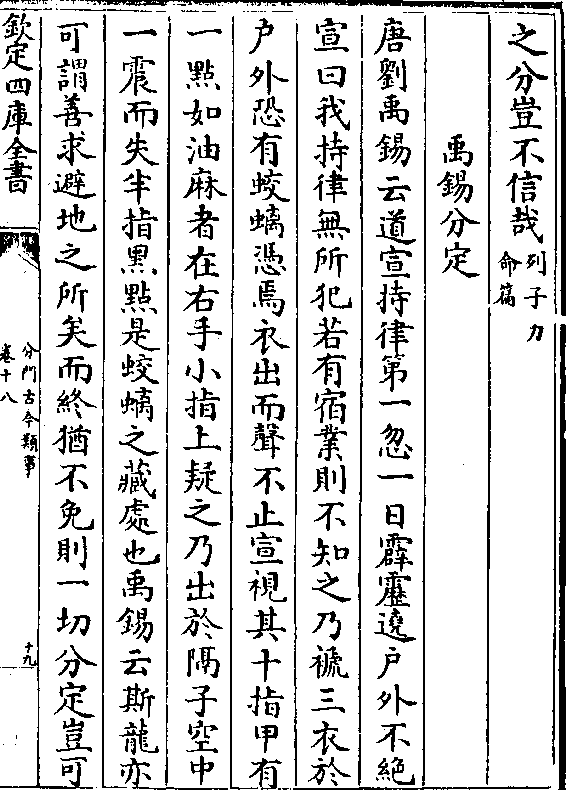 之分豈不信哉列子力命篇
禹錫分定
唐劉禹錫云道宣持律第一忽一日霹靂遶戶外不絶
宣曰我持律無所犯若有宿業則不知之乃褫三衣於
戶外恐有蛟螭憑焉衣出而聲不止宣視其十指甲有
一㸃如油麻者在右手小指上疑之乃出於隔子空中
一震而失半指黑㸃是蛟螭之藏處也禹錫云斯龍亦
可謂善求避地之所矣而終猶不免則一切分定豈可
欽定四庫全書
分門古今類事
卷十八
十九